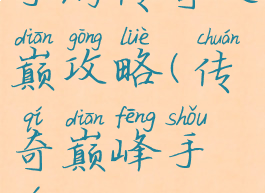 diān gōng lüè chuán
巅攻略(传
qí diān fēng shǒu
奇巅峰手